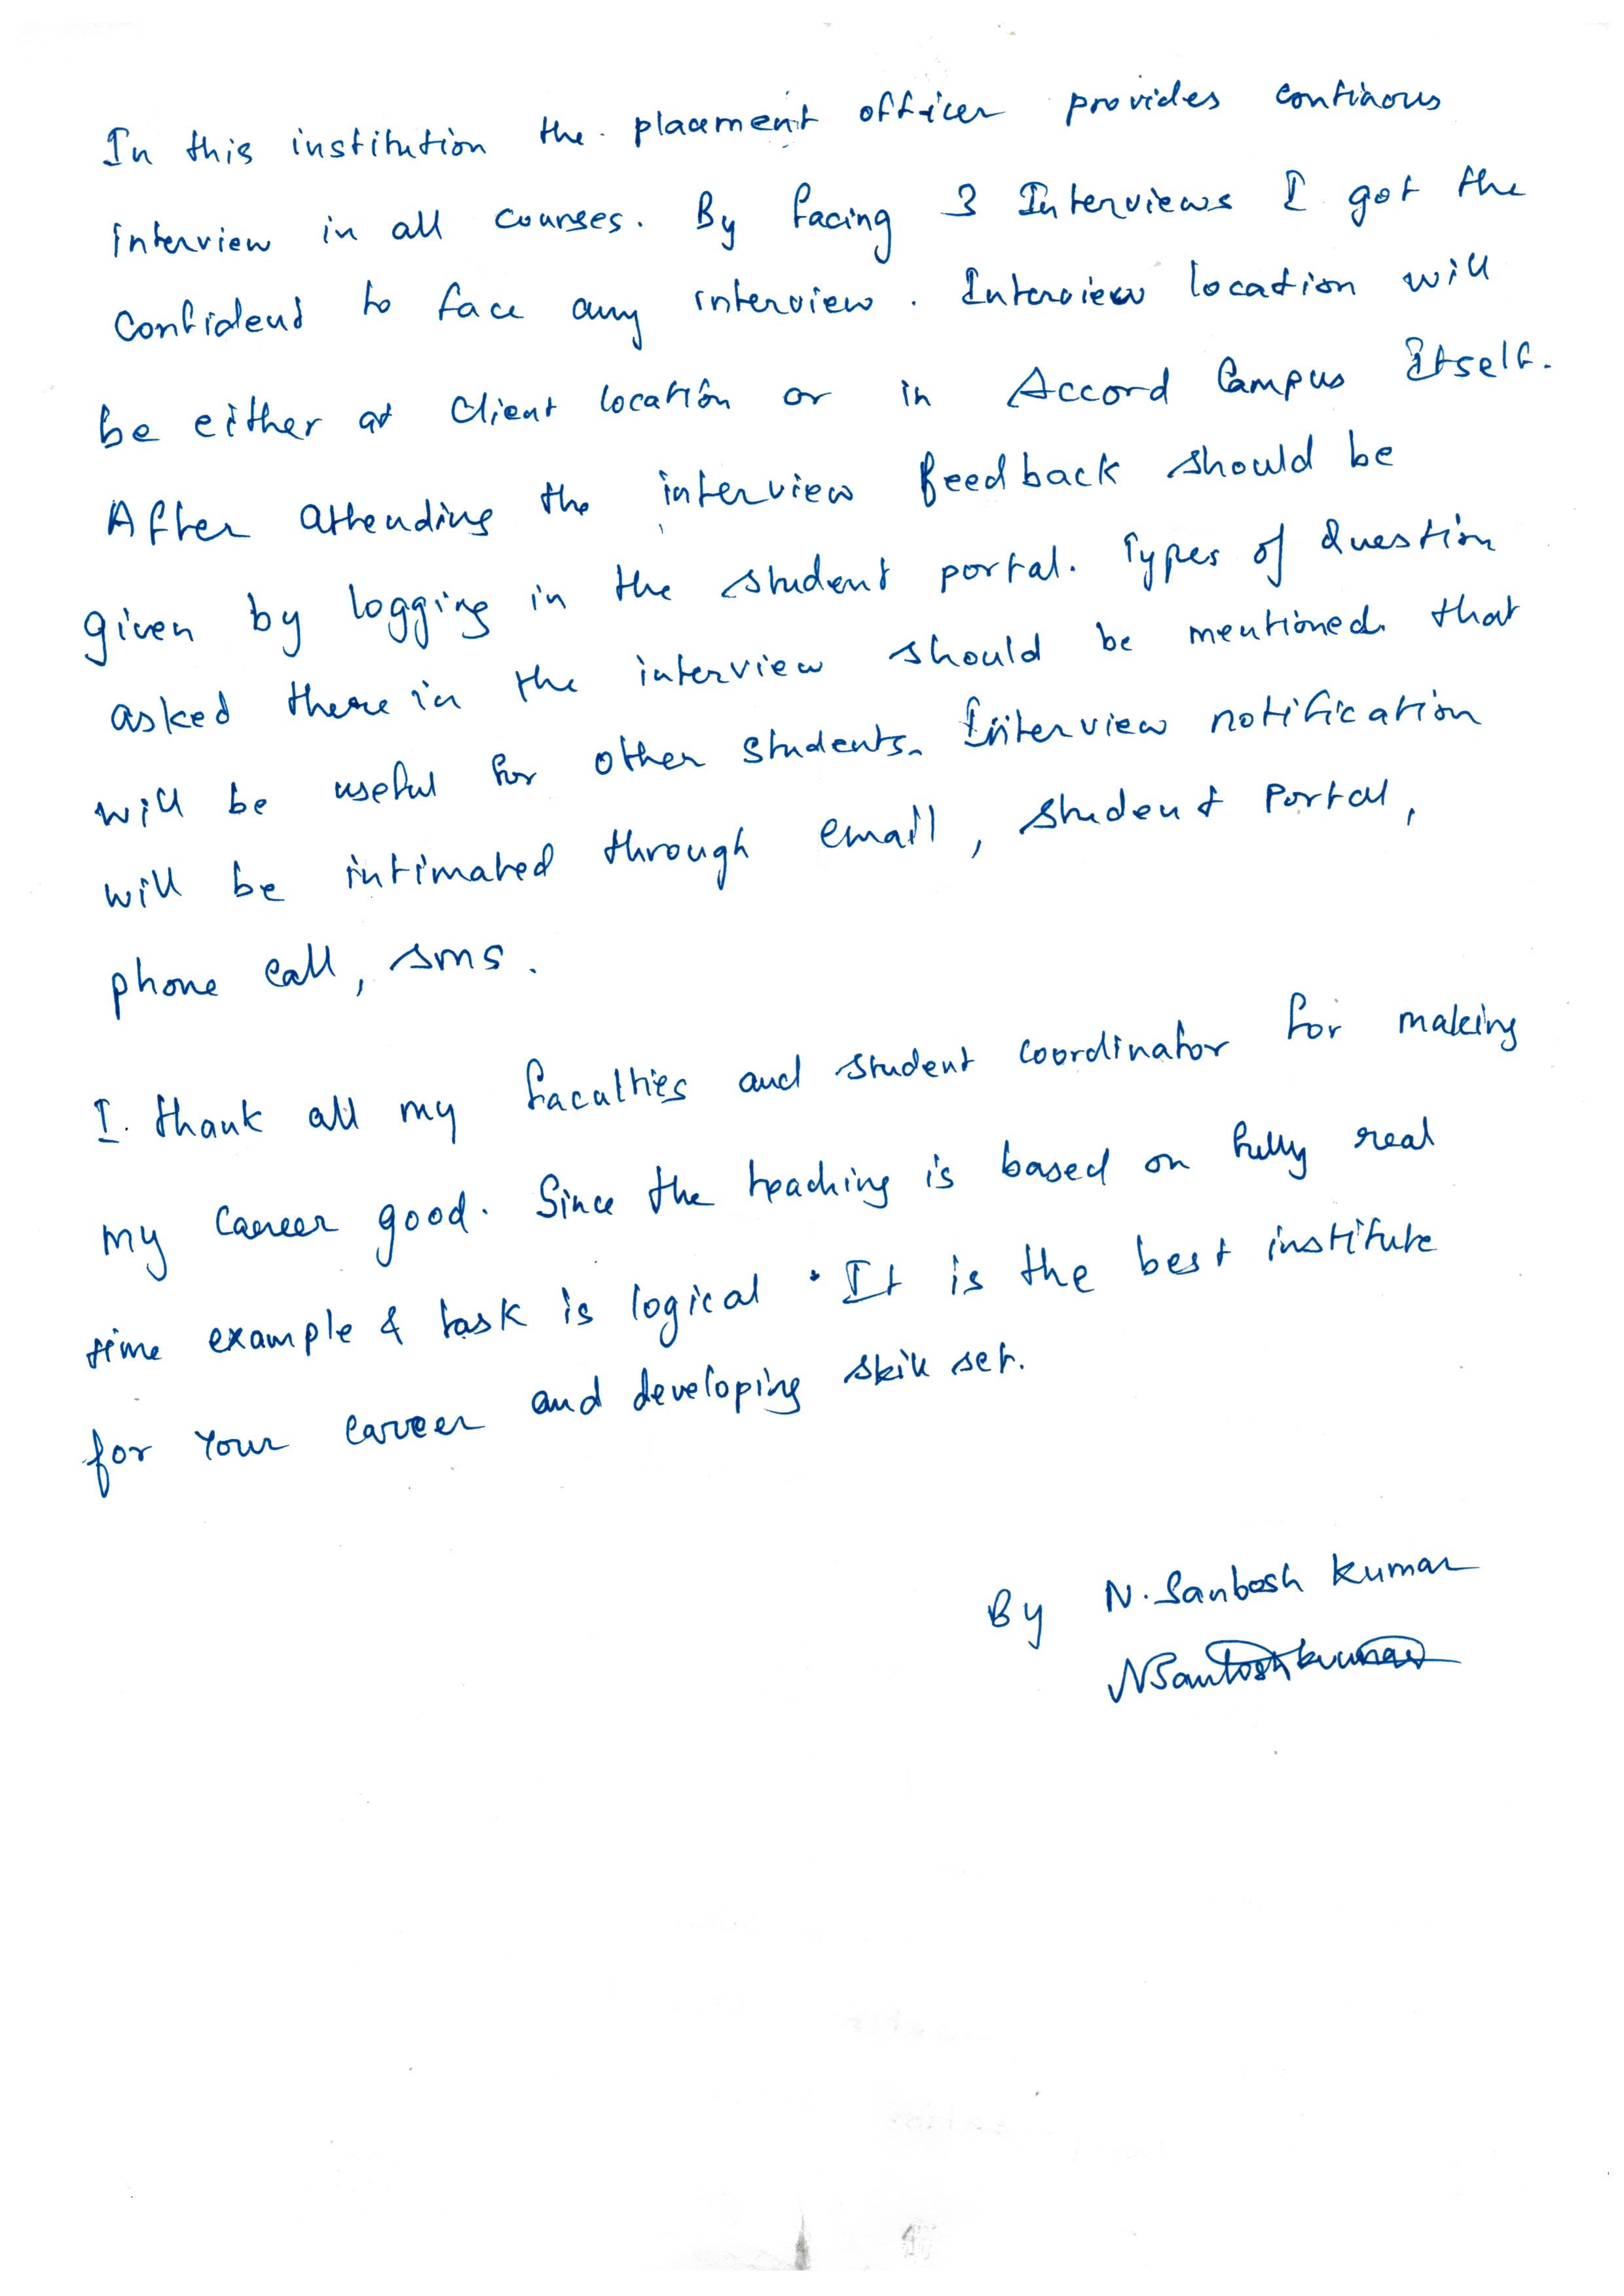 In this institution the placement officer provides continous
interview in all courses. By facing 3 Interviews I got the
confidend to face any interview. Interview location will
be either at Client location or in Accord Campus Itself.
After attending the interview feedback should be
given by logging in the student portal. Types of Question
asked there in the interview should be mentioned. that
will be useful for other students. Interview notification
will be intimated through email, student portal,
phone call, sms.
I thank all my faculties and student coordinator for making
my career good. Since the teaching is based on fully real
time example & task is logical. It is the best institute
for your career and developing skill set.
By N. Santosh Kumar
NSantoshkumar